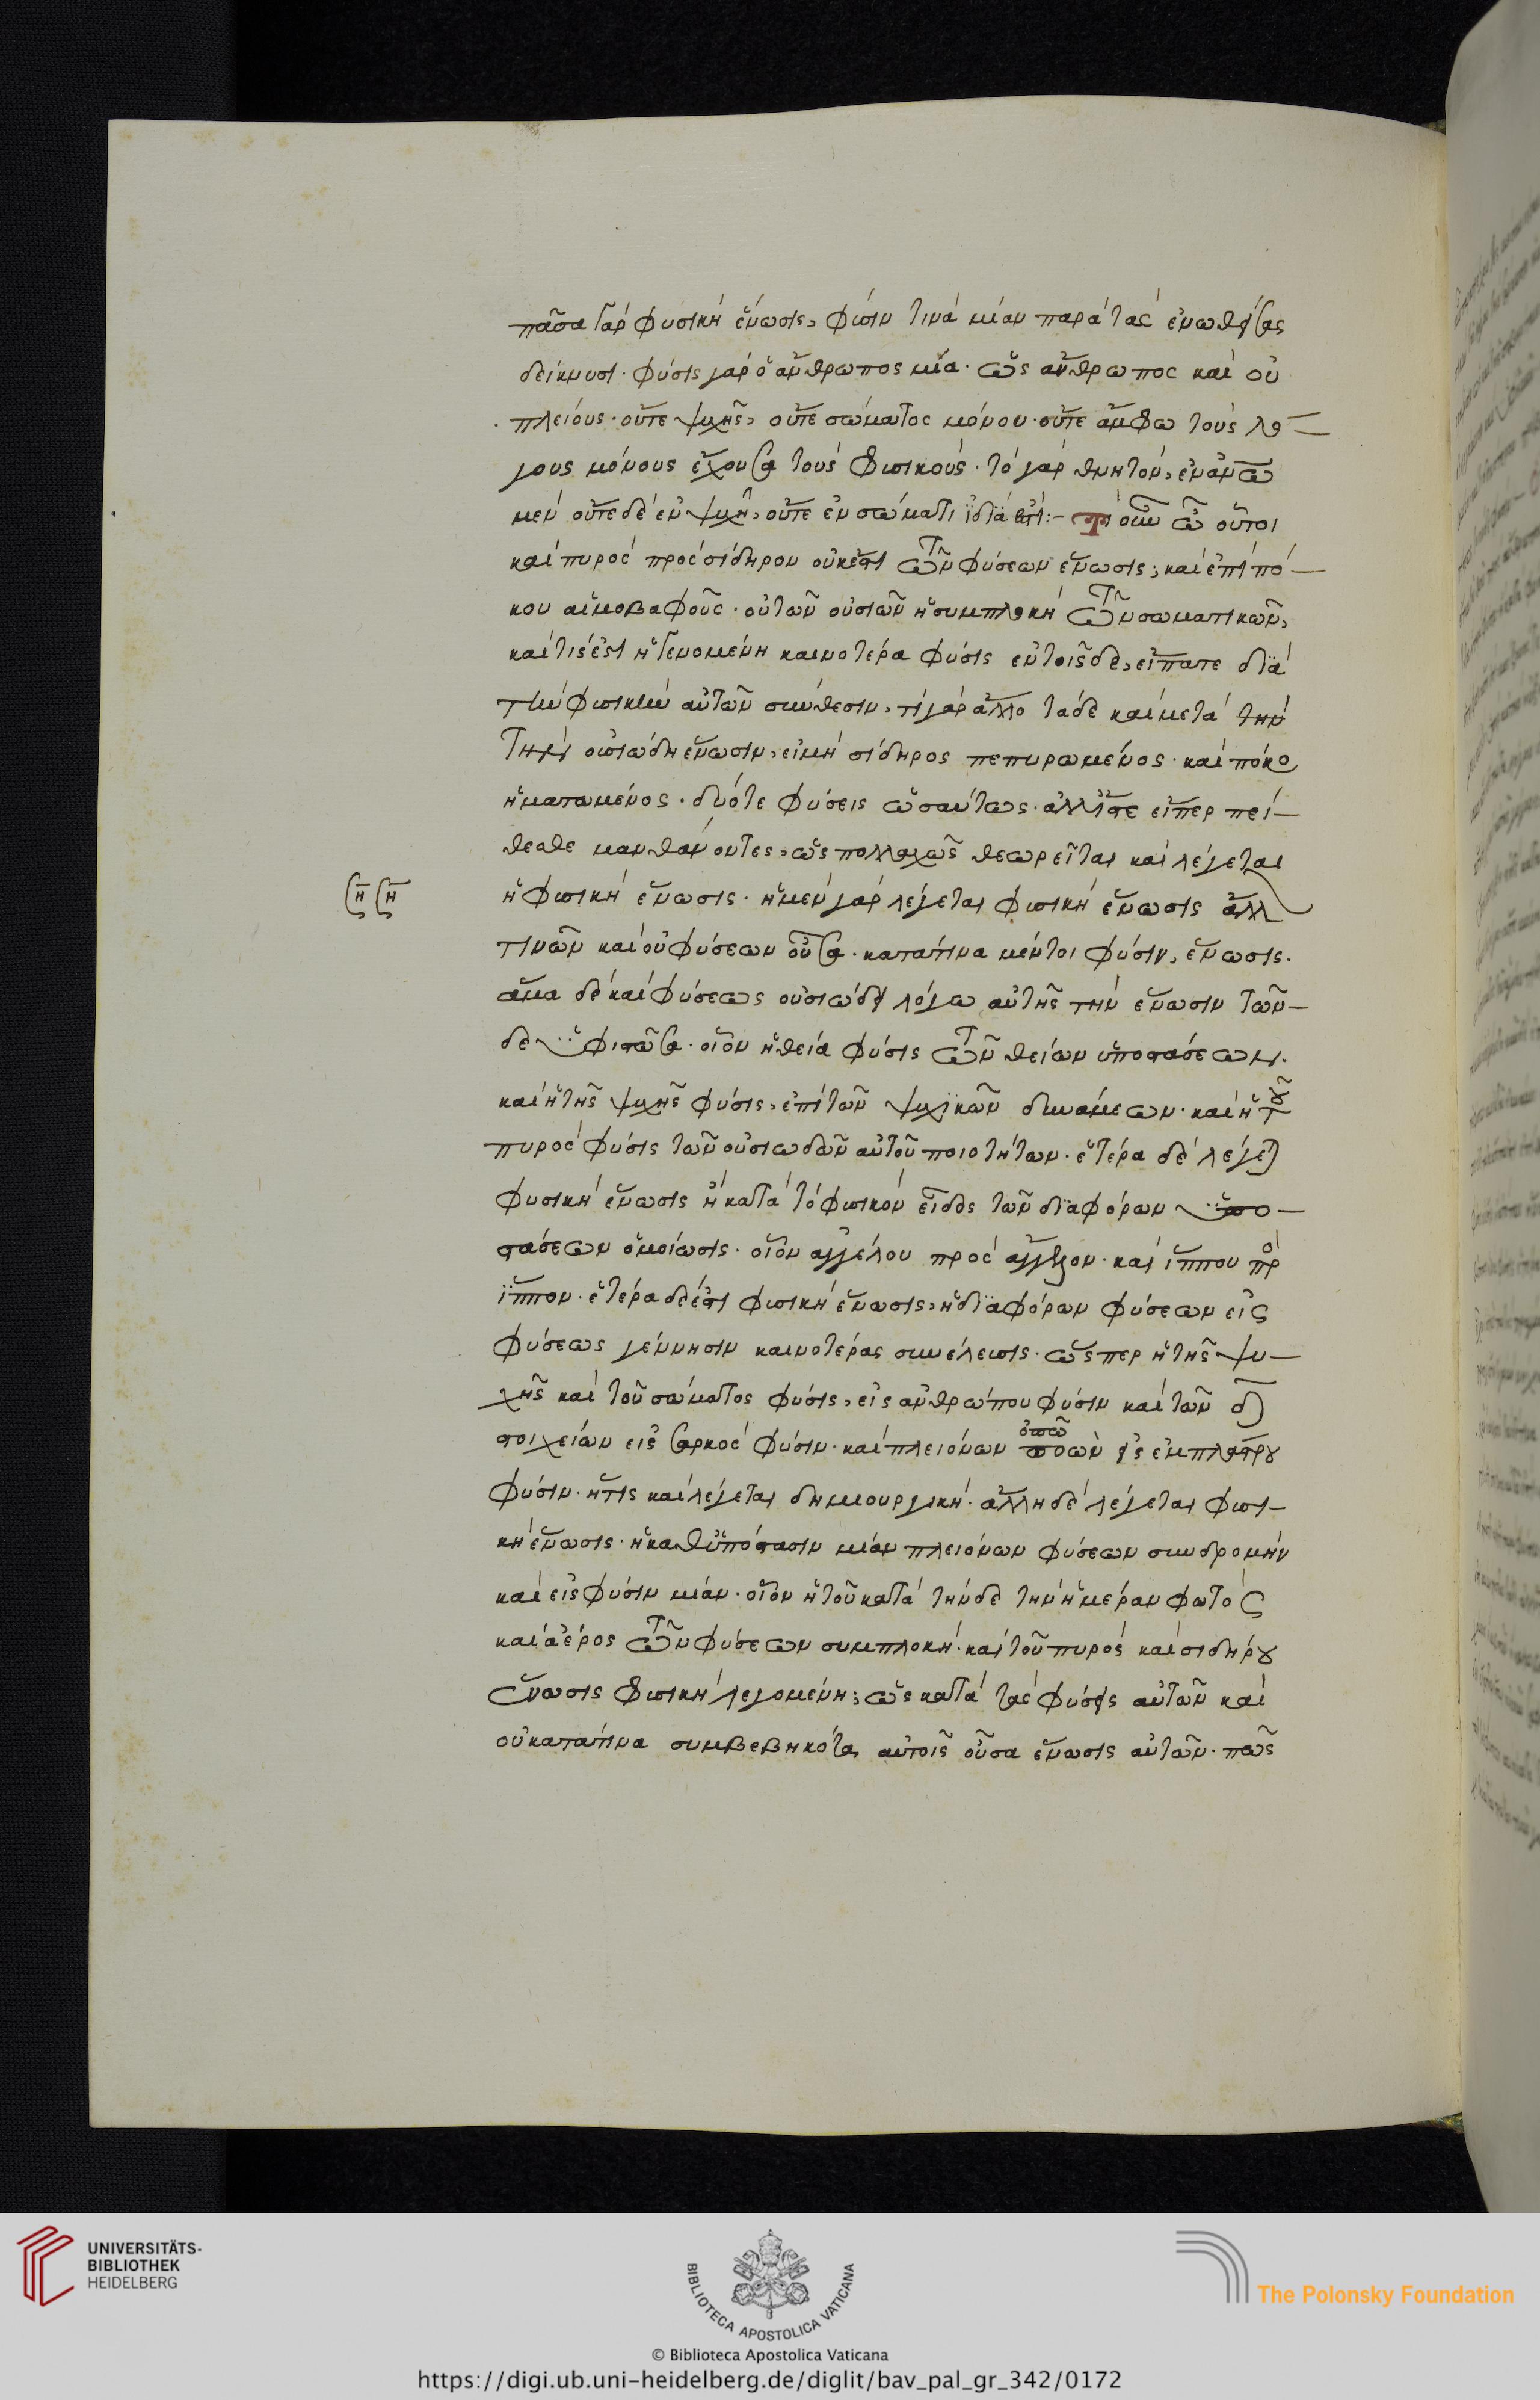 πᾶσα γὰρ φυσικὴ ἕνωσις, φύσιν τινὰ μίαν παρὰ τὰς ἑνωθείσας
δείκνυσι· φύσις γὰρ ὁ ἄνθρωπος μία· ὡς ἄνθρωπος καὶ οὐ
πλείους· οὔτε ψυχῆς, οὔτε σώματος μόνον· οὔτε ἄμφω τοὺς λό
γους μόνους ἔχουσα τοὺς φυσικούς· τὸ γὰρ θνητὸν, ἐν ἀνω
μεν οὔτε δὲ ἐν ψυχῆ, οὔτε ἐν σώματι ἰδία ἐστί:- Τί οὖν ὦ οὗτοι
καὶ πυρὸς πρὸς σίδηρον οὐκ ἔστι τῶν φύσεων ἕνωσις; καὶ ἐπὶ πό
κου αἱμοβαφοῦς· οὐ τῶν οὐσιῶν ἡ συμπλοκὴ τῶν σωματικῶν,
καὶ τίς ἐστι ἡ γενομένη καινοτέρα φύσις ἐν τοῖσδε, εἴπατε διὰ
τὴν φυσικὴν αὐτῶν σύνθεσιν, τί γὰρ ἄλλο τάδε καὶ μετὰ τὴν
τὴν οὐσιώδη ἕνωσιν, εἰ μὴ σίδηρος πεπυρωμένος· καὶ πόκος
ἡματωμένος· δύο τε φύσεις ὡσαύτως· ἀλλ' ἴστε εἴπερ πεί
θεσθε μανθάνοντες, ὡς πολλαχῶς θεωρεῖται καὶ λέγεται
ἡ φυσικὴ ἕνωσις· ἡ μὲν γὰρ λέγεται φυσικὴ ἕνωσις ἀλλ
τινῶν καὶ οὐ φύσεων οὖσα· κατά τινα μέντοι φύσιν, ἕνωσις·
ἅμα δὲ καὶ φύσεως οὐσιώδει λόγω αὐτῆς τὴν ἕνωσιν τῶν
δε ὑφιστῶσα· οἷον ἡ θεία φύσις τῶν θείων ὑποστάσεων·
καὶ ἡ τῆς ψυχῆς φύσις, ἐπὶ τῶν ψυχικῶν δυνάμεων· καὶ ἡ τοῦ
πυρὸς φύσις τῶν οὐσιωδῶν αὐτοῦ ποιοτήτων· ἑτέρα δὲ λέγεται
φυσικὴ ἕνωσις ἡ κατὰ τὸ φυσικὸν εἶδος τῶν διαφόρων ὑπο
στάσεων ὁμοίωσις· οἷον ἀγγέλου πρὸς ἄγγελον· καὶ ἵππου πρὸς
ἵππον· ἑτέρα δέ ἐστι φυσικὴ ἕνωσις, ἡ διαφόρων φύσεων εἰς
φύσεως γέννησιν καινοτέρας συνέλευσις· ὥσπερ ἡ τῆς ψυ
χῆς καὶ τοῦ σώματος φύσις, εἰς ἀνθρώπου φύσιν καὶ τῶν δ
στοιχείων εἰς σαρκὸς φύσιν· καὶ πλειόνων εἰς ἐμπλάστρου
φύσιν· ἥτις καὶ λέγεται δημιουργική· ἄλλη δὲ λέγεται φυσι
κὴ ἕνωσις· ἡ καθ' ὑπόστασιν μίαν πλειόνων φύσεων συνδρομὴν
καὶ εἰς φύσιν μίαν· οἷον ἡ τοῦ κατὰ τήνδε τὴν ἡμέραν φωτὸς
καὶ ἀέρος τῶν φύσεων συμπλοκή· καὶ τοῦ πυρὸς καὶ σιδήρου
ἕνωσις φυσικὴ λεγομένη; ὡς κατὰ τὰς φύσεις αὐτῶν καὶ
οὐ κατά τινα συμβεβηκότα αὐτοῖς οὖσα ἕνωσις αὐτῶν· πῶς
UNIVERSITÄTS-
BIBLIOTHEK
HEIDELBERG
BIBLIOTECA APOSTOLICA VATICANA
The Polonsky Foundation
© Biblioteca Apostolica Vaticana
https://digi.ub.uni-heidelberg.de/diglit/bav_pal_gr_342/0172